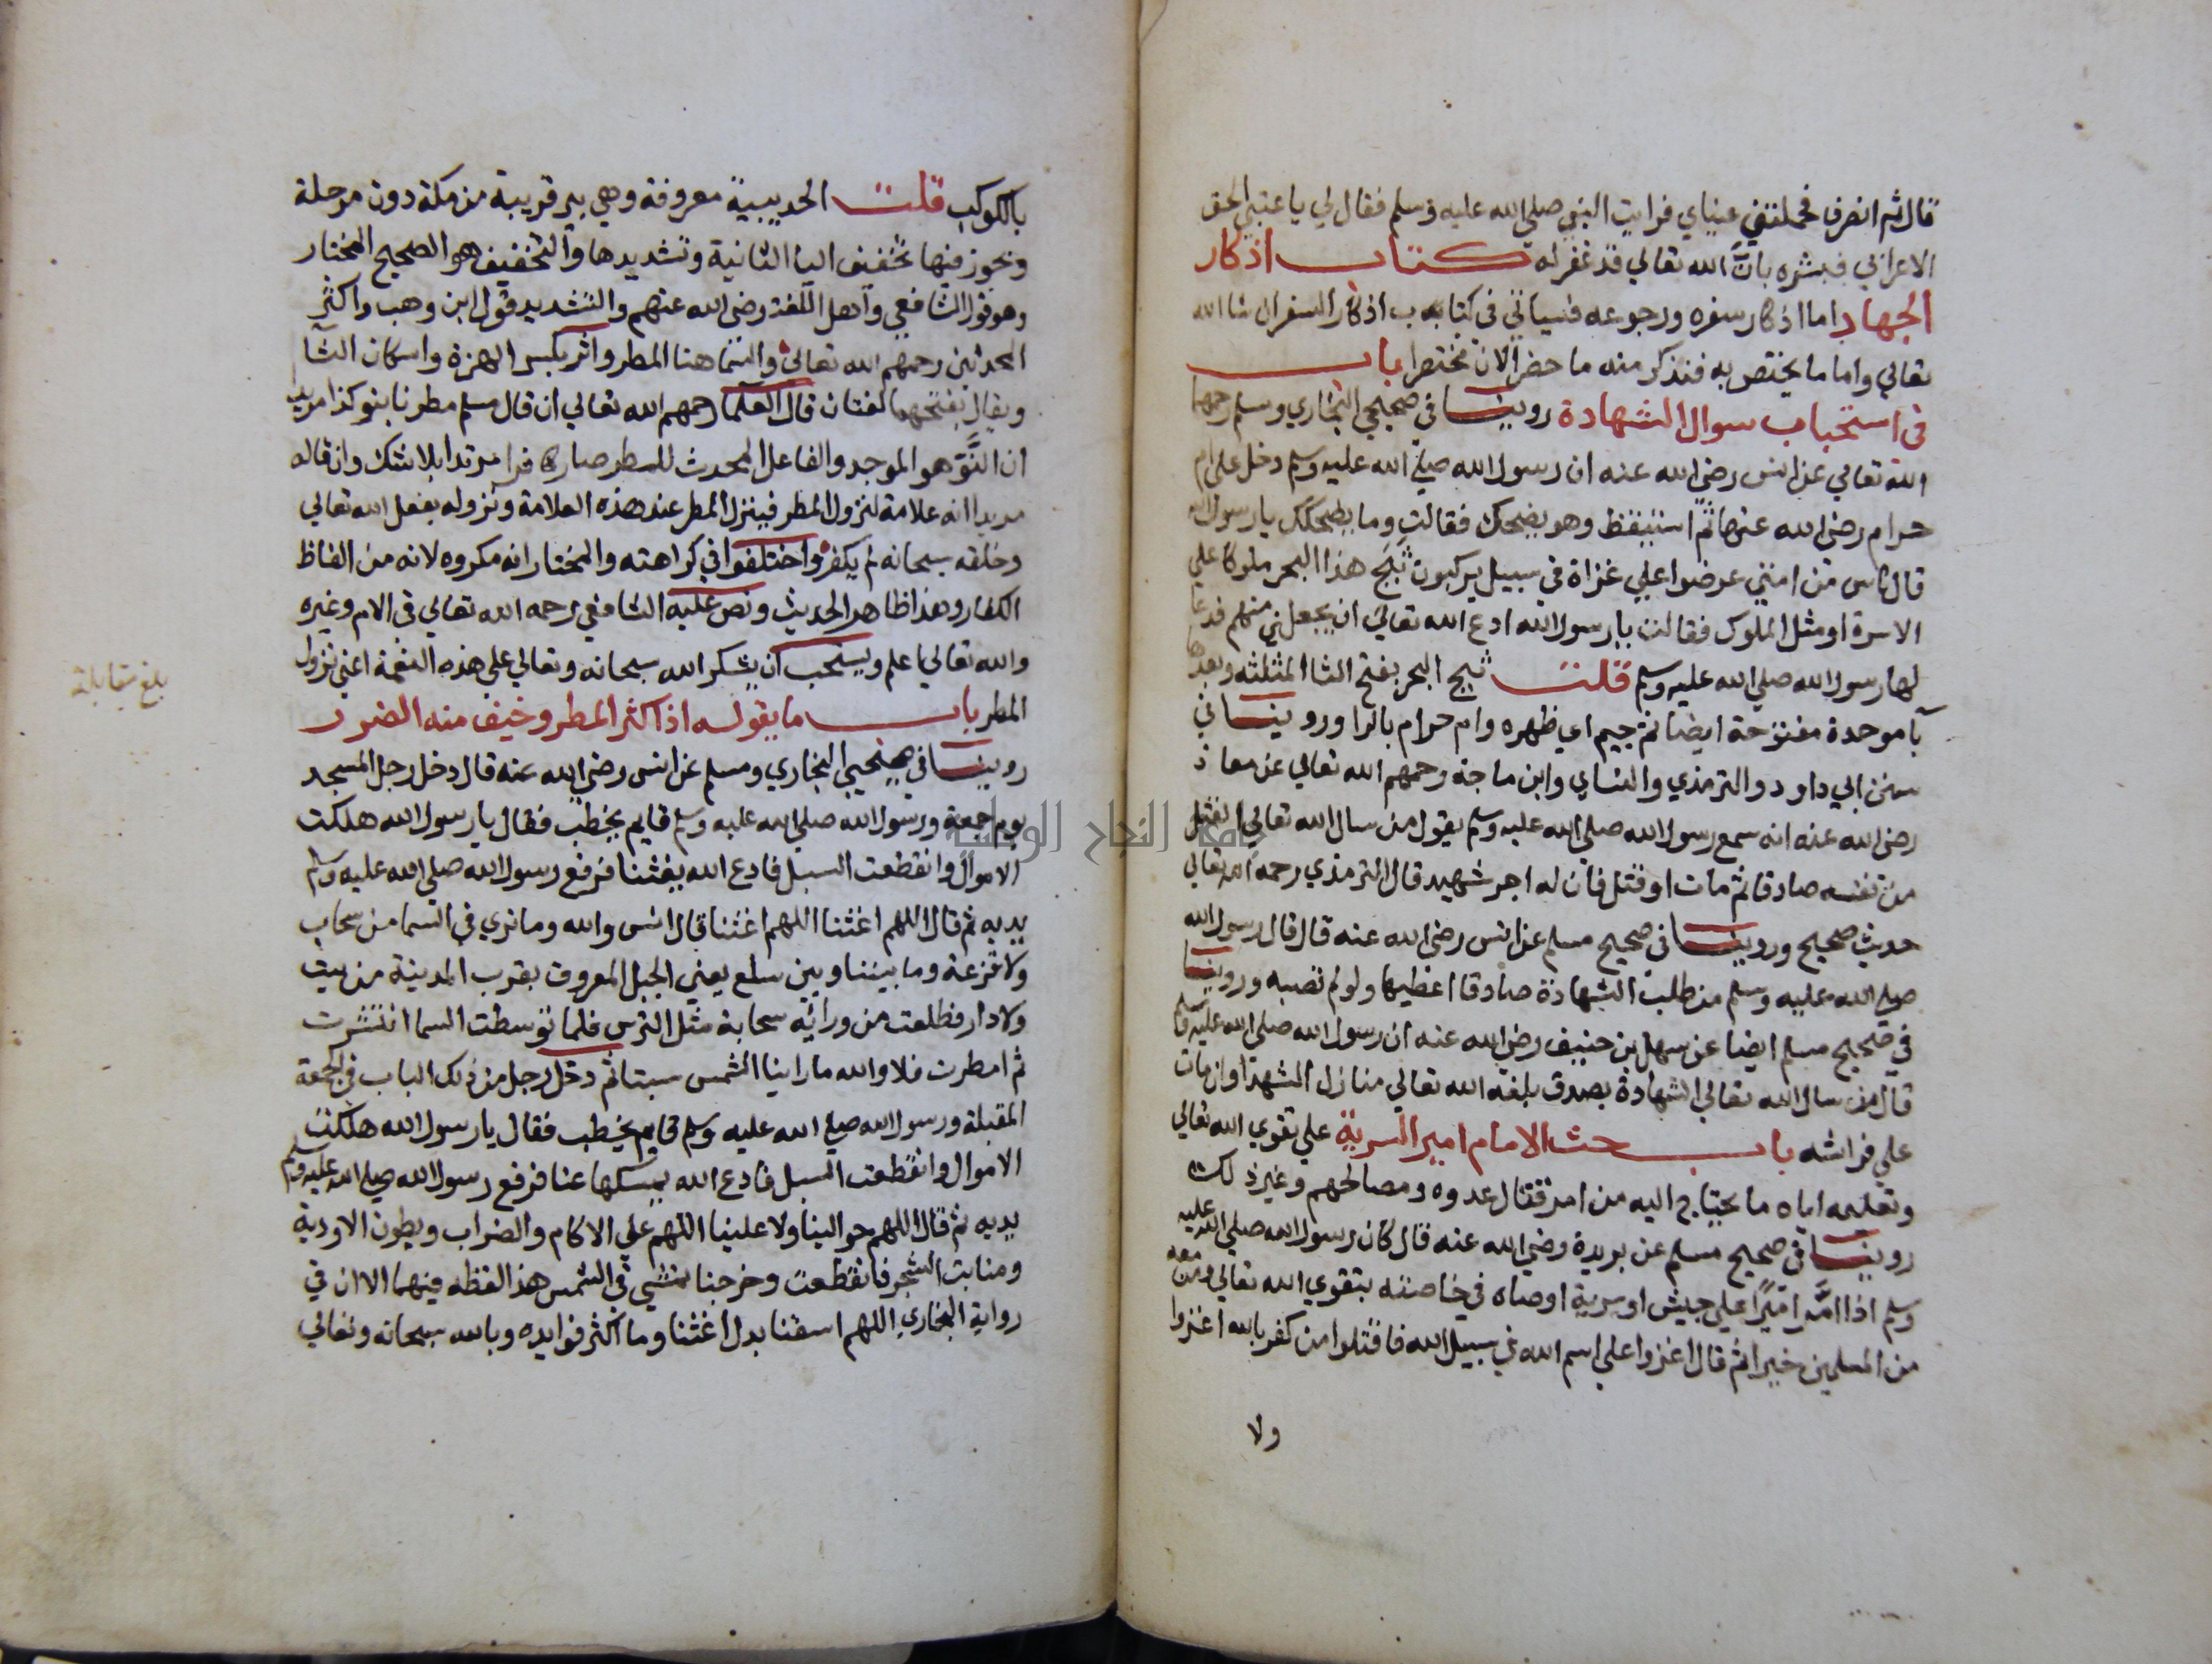 قال ثم انصرف فحملتني عيناي فرايت النبي صلي الله عليه وسلم فقال لي يا عتبي الحق
الاعرابي فبشره بان الله تعالي قد غفر له كتاب اذكار
الجهاد اما اذكار سفره ورجوعه فسياتي في كتاب اذكار السفر ان شا الله
تعالي واما ما يختص به فنذكر منه ما حضر الان مختصرا باب
في استحباب سوال الشهادة روينا في صحيحي البخاري ومسلم رحمهما
الله تعالي عن انس رضي الله عنه ان رسول الله صلي الله عليه وسلم دخل علي ام
حرام رضي الله عنها ثم استيقظ وهو يضحك فقالت وما يضحكك يا رسول الله
قال ناس من امتي عرضوا علي غزاة في سبيل يركبون ثبج هذا البحر ملوكا علي
الاسرة او مثل الملوك فقالت يا رسول الله ادع الله تعالي ان يجعلني منهم فدعا
لها رسول الله صلي الله عليه وسلم قلت ثبج البحر بفتح الثا المثلثه وبعدها
با موحدة مفتوحة ايضا ثم جيم اي ظهره وام حرام بالرا وروينا في
سنن ابي داود والترمذي والنساي وابن ماجة رحمهم الله تعالي عن معاذ
رضي الله عنه انه سمع رسول الله صلي الله عليه وسلم يقول من سال الله تعالي القتل
من نفسه صادقا ثم مات او قتل فان له اجر شهيد قال الترمذي رحمه الله تعالي
حديث صحيح وروينا في صحيح مسلم عن انس رضي الله عنه قال قال رسول الله
صلي الله عليه وسلم من طلب الشهادة صادقا اعطيها ولو لم تصبه وروينا
في صحيح مسلم ايضا عن سهل بن حنيف رضي الله عنه ان رسول الله صلي الله عليه وسلم
قال من سال الله تعالي الشهادة بصدق بلغه الله تعالي منازل الشهدا وان مات
علي فراشه باب حث الامام امير السرية علي تقوي الله تعالي
وتعليمه اياه ما يحتاج اليه من امر قتال عدوه ومصالحهم وغير ذلك
روينا في صحيح مسلم عن بريدة رضي الله عنه قال كان رسول الله صلي الله عليه
وسلم اذا امر اميرا علي جيش او سرية اوصاه في خاصته بتقوي الله تعالي ومن معه
من المسلمين خيرا ثم قال اغزوا علي اسم الله في سبيل الله فاقتلوا من كفر بالله اغزوا
ولا
بالكوكب قلت الحديبية معروفة وهي بير قريبة من مكة دون مرحلة
ويجوز فيها تخفيف اليا الثانية وتشديدها والتخفيف هو الصحيح المختار
وهو قول الشافعي واهل اللغة رضي الله عنهم والتشديد قول ابن وهب واكثر
المحدثين رحمهم الله تعالي والسما هنا المطر واثر بكسر الهمزة واسكان الثا
ويقال بفتحهما لغتان قال العلما رحمهم الله تعالي ان قال مسلم مطرنا بنو كذا مريدا
ان النو هو الموجد والفاعل المحدث للمطر صار كافرا مرتدا بلا شك وان قاله
مريدا انه علامة لنزول المطر فينزل المطر عند هذه العلامة ونزوله بفعل الله تعالي
وخلقه سبحانه لم يكفر واختلفوا في كراهته والمختار انه مكروه لانه من الفاظ
الكفار وهذا ظاهر الحديث ونص عليه الشافعي رحمه الله تعالي في الام وغيره
والله تعالي اعلم ويستحب ان يشكر الله سبحانه وتعالي علي هذه النعمة اعني نزول
المطر باب ما يقوله اذا كثر المطر وخيف منه الضرر
روينا في صحيحي البخاري ومسلم عن انس رضي الله عنه قال دخل رجل المسجد
يوم جمعة ورسول الله صلي الله عليه وسلم قايم يخطب فقال يا رسول الله هلكت
الاموال وانقطعت السبل فادع الله يغثنا فرفع رسول الله صلي الله عليه وسلم
يديه ثم قال اللهم اغثنا اللهم اغثنا قال انس والله وما نري في السما من سحاب
ولا قزعة وما بيننا وبين سلع يعني الجبل المعروف بقرب المدينة من بيت
ولا دار فطلعت من ورائه سحابة مثل الترس فلما توسطت السما انتشرت
ثم امطرت فلا والله ما راينا الشمس سبتا ثم دخل رجل من ذلك الباب في الجمعة
المقبلة ورسول الله صلي الله عليه وسلم قايم يخطب فقال يا رسول الله هلكت
الاموال وانقطعت السبل فادع الله يمسكها عنا فرفع رسول الله صلي الله عليه وسلم
يديه ثم قال اللهم حوالينا ولا علينا اللهم علي الاكام والضراب وبطون الاودية
ومنابت الشجر فانقطعت وخرجنا نمشي في الشمس هذا لفظه فيهما الا ان في
رواية البخاري اللهم اسقنا بدل اغثنا وما اكثر فوايده وبالله سبحانه وتعالي
بلغ مقابلة
جامعة النجاح الوطنية